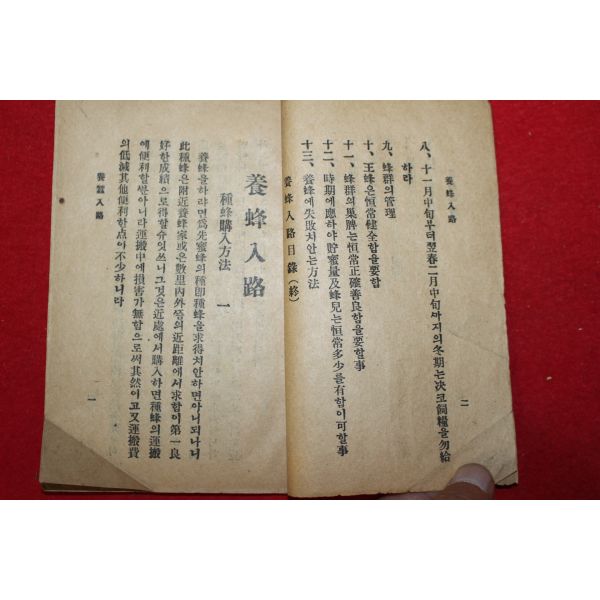 養蜂入路
二
八、十一月中旬부터翌春二月中旬까지의冬期는決코飼糧을勿給
하라
九、蜂群의管理
十、王蜂은恒常健全함을要함
十一、蜂群의巢脾는恒常正確善良함을要할事
十二、時期에應하야貯蜜量及蜂兒는恒常多少를有함이可할事
十三、養蜂에失敗치안는方法
養蜂入路目錄(終)
養蜂入路
種蜂購入方法 一
養蜂을하랴면爲先蜜蜂의種卽種蜂을求得치안하면아니되나니
此種蜂은附近養蜂家或은數里內外엄의近距離에서求함이第一良
好한成績으로得할슈잇쓰니그것은近處에서購入하면種蜂의運搬
에便利할뿐아니라運搬中에損害가無함으로써其然이고又運搬費
의低減其他便利한点아不少하니라
養蜂入路
一